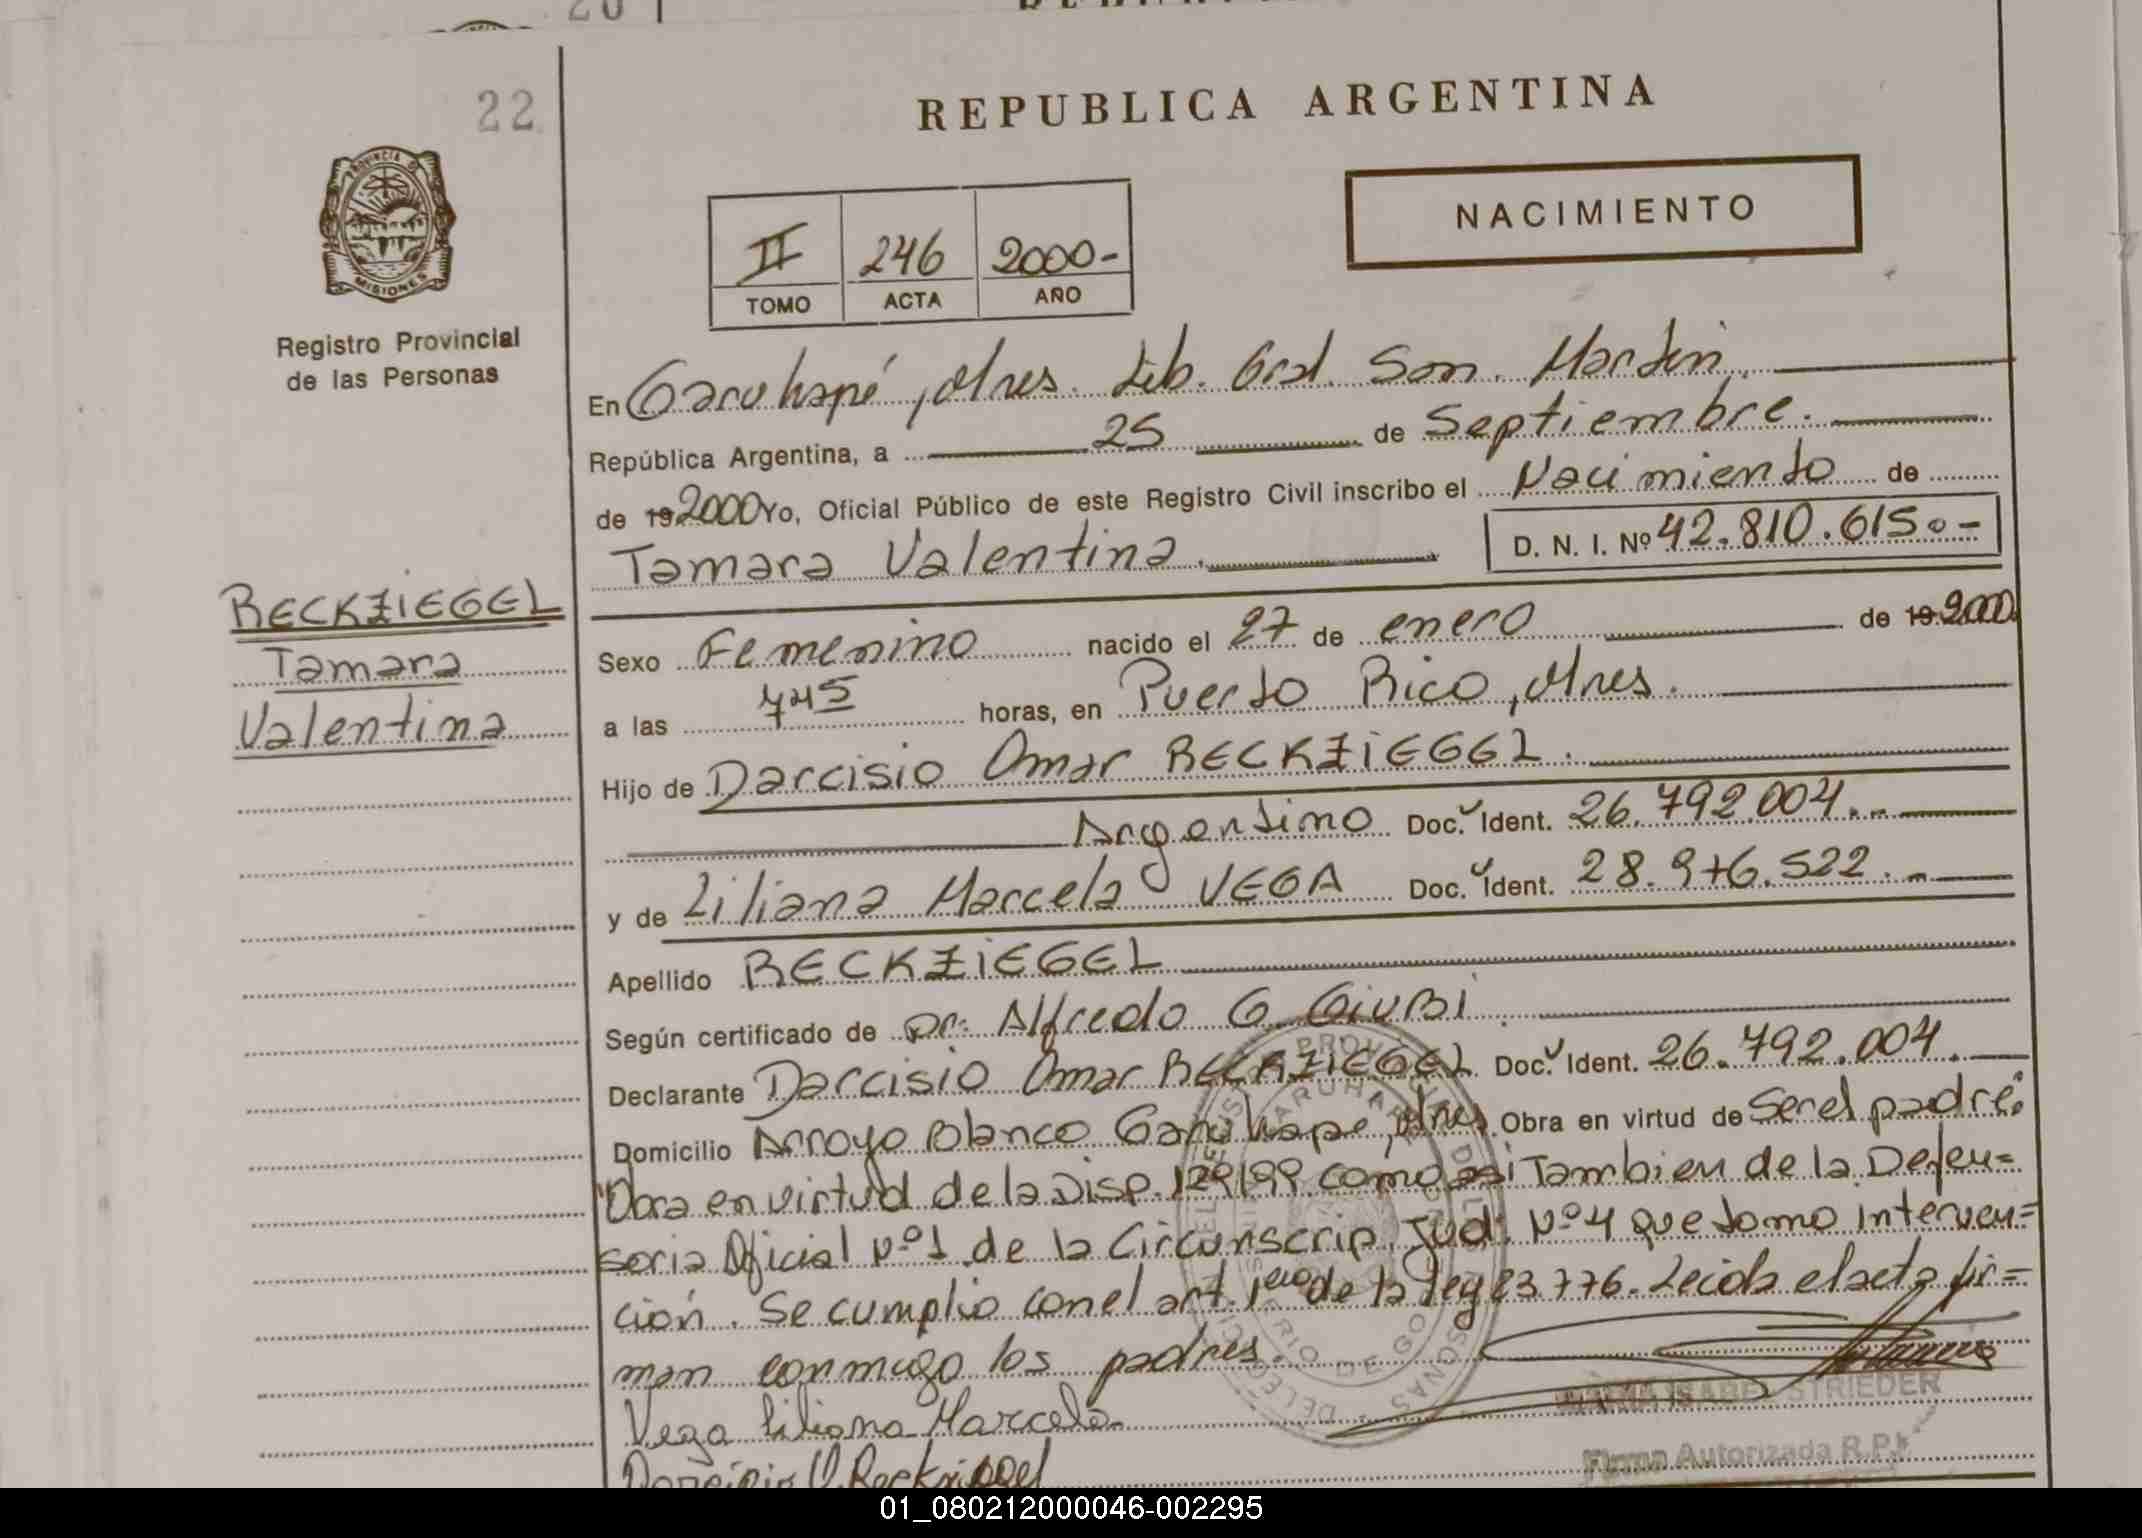 22
REPUBLICA ARGENTINA
PROVINCIA DE
MISIONES
Registro Provincial
de las Personas
II 246 2000-
TOMO ACTA AÑO
NACIMIENTO
En Garuhapé, Mnes. Lib. Gral. San. Martin.
República Argentina, a 25 de Septiembre.
de 19 2000 Yo, Oficial Público de este Registro Civil inscribo el Nacimiento de
Tamara Valentina. D. N. I. Nº 42.810.615.-
RECKZIEGEL
Tamara
Valentina
Sexo Femenino nacido el 27 de enero de 19 2000.
a las 7 45 horas, en Puerto Rico, Mnes.
Hijo de Darcisio Omar RECKZIEGEL.
Argentino Doc. Ident. 26.792.004.-
y de Liliana Marcela VEGA Doc. Ident. 28.976.522.-
Apellido RECKZIEGEL
Según certificado de Dr. Alfredo G. GiUBi.
Declarante Darcisio Omar RECKZIEGEL Doc. Ident. 26.792.004.
Domicilio Arroyo Blanco Garuhape, Mnes. Obra en virtud de Ser el padre.
"Obra en virtud de la Disp. 129/99. como asi Tambien de la Defen=
soria Oficial Nº 1 de la Circunscrip. Jud. Nº 4 que tomo interven=
ción. Se cumplio con el art. 1ero de la ley 23.776. Leida el acta fir=
man conmigo los padres.
Vega Liliana Marcela
MARIA ISABEL STRIEDER
Darcisio O. Reckziegel
Firma Autorizada R.P.P.
01_080212000046-002295